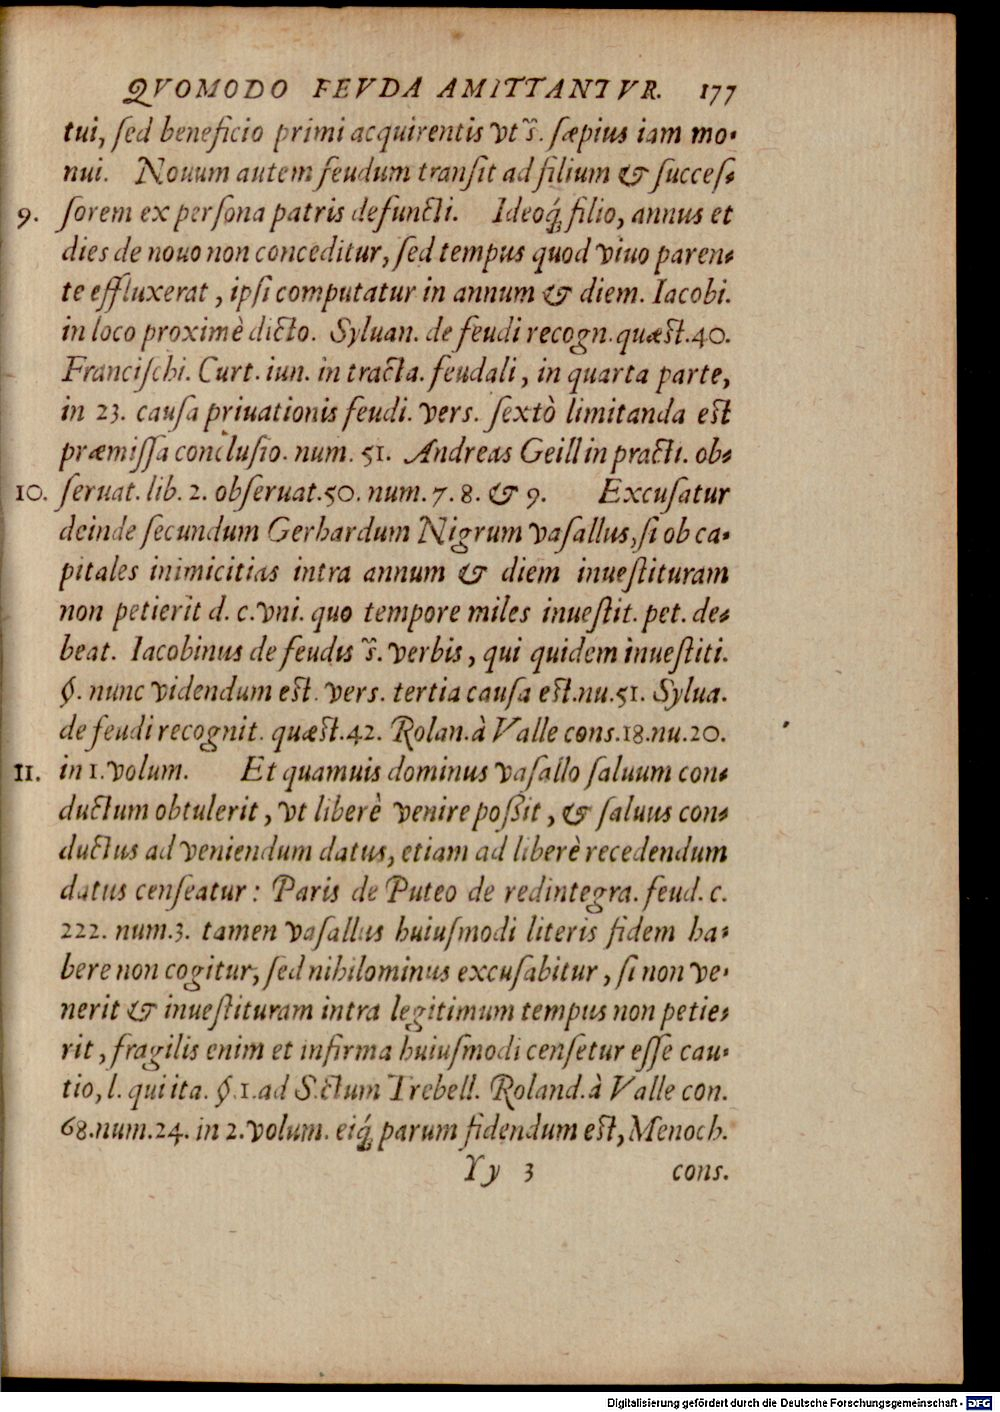 QVOMODO FEVDA AMITTANTVR. 177
tui, ſed beneficio primi acquirentis vt s̃. ſæpius iam mo-
nui. Nouum autem feudum tranſit ad filium & succeſ-
9. ſorem ex perſona patris defuncti. Ideoq́; filio, annus et
dies de nouo non conceditur, ſed tempus quod viuo paren-
te effluxerat, ipſi computatur in annum & diem. Iacobi.
in loco proximè dicto. Syluan. de feudi recogn. quæst. 40.
Franciſchi. Curt. iun. in tracta. feudali, in quarta parte,
in 23. cauſa priuationis feudi. vers. ſextò limitanda est
præmiſſa concluſio. num. 51. Andreas Geill in practi. ob-
10. ſeruat. lib. 2. obſeruat. 50. num. 7. 8. & 9. Excuſatur
deinde ſecundum Gerhardum Nigrum vaſallus, ſi ob ca-
pitales inimicitias intra annum & diem inueſtituram
non petierit d. c. vni. quo tempore miles inueſtit. pet. de-
beat. Iacobinus de feudis s̃. verbis, qui quidem inueſtiti.
§. nunc videndum est. vers. tertia cauſa est. nu. 51. Sylua.
de feudi recognit. quæst. 42. Rolan. à Valle cons. 18. nu. 20.
11. in 1. volum. Et quamuis dominus vaſallo ſaluum con-
ductum obtulerit, vt liberè venire poßit, & ſaluus con-
ductus ad veniendum datus, etiam ad liberè recedendum
datus cenſeatur: Paris de Puteo de redintegra. feud. c.
222. num. 3. tamen vaſallus huiuſmodi literis fidem ha-
bere non cogitur, ſed nihilominus excuſabitur, ſi non ve-
nerit & inueſtituram intra legitimum tempus non petie-
rit, fragilis enim et infirma huiuſmodi cenſetur eſſe cau-
tio, l. qui ita. §. 1. ad S.ctum Trebell. Roland. à Valle con.
68. num. 24. in 2. volum. eiq́; parum fidendum est, Menoch.
Yy 3 cons.
Digitalisierung gefördert durch die Deutsche Forschungsgemeinschaft - DFG